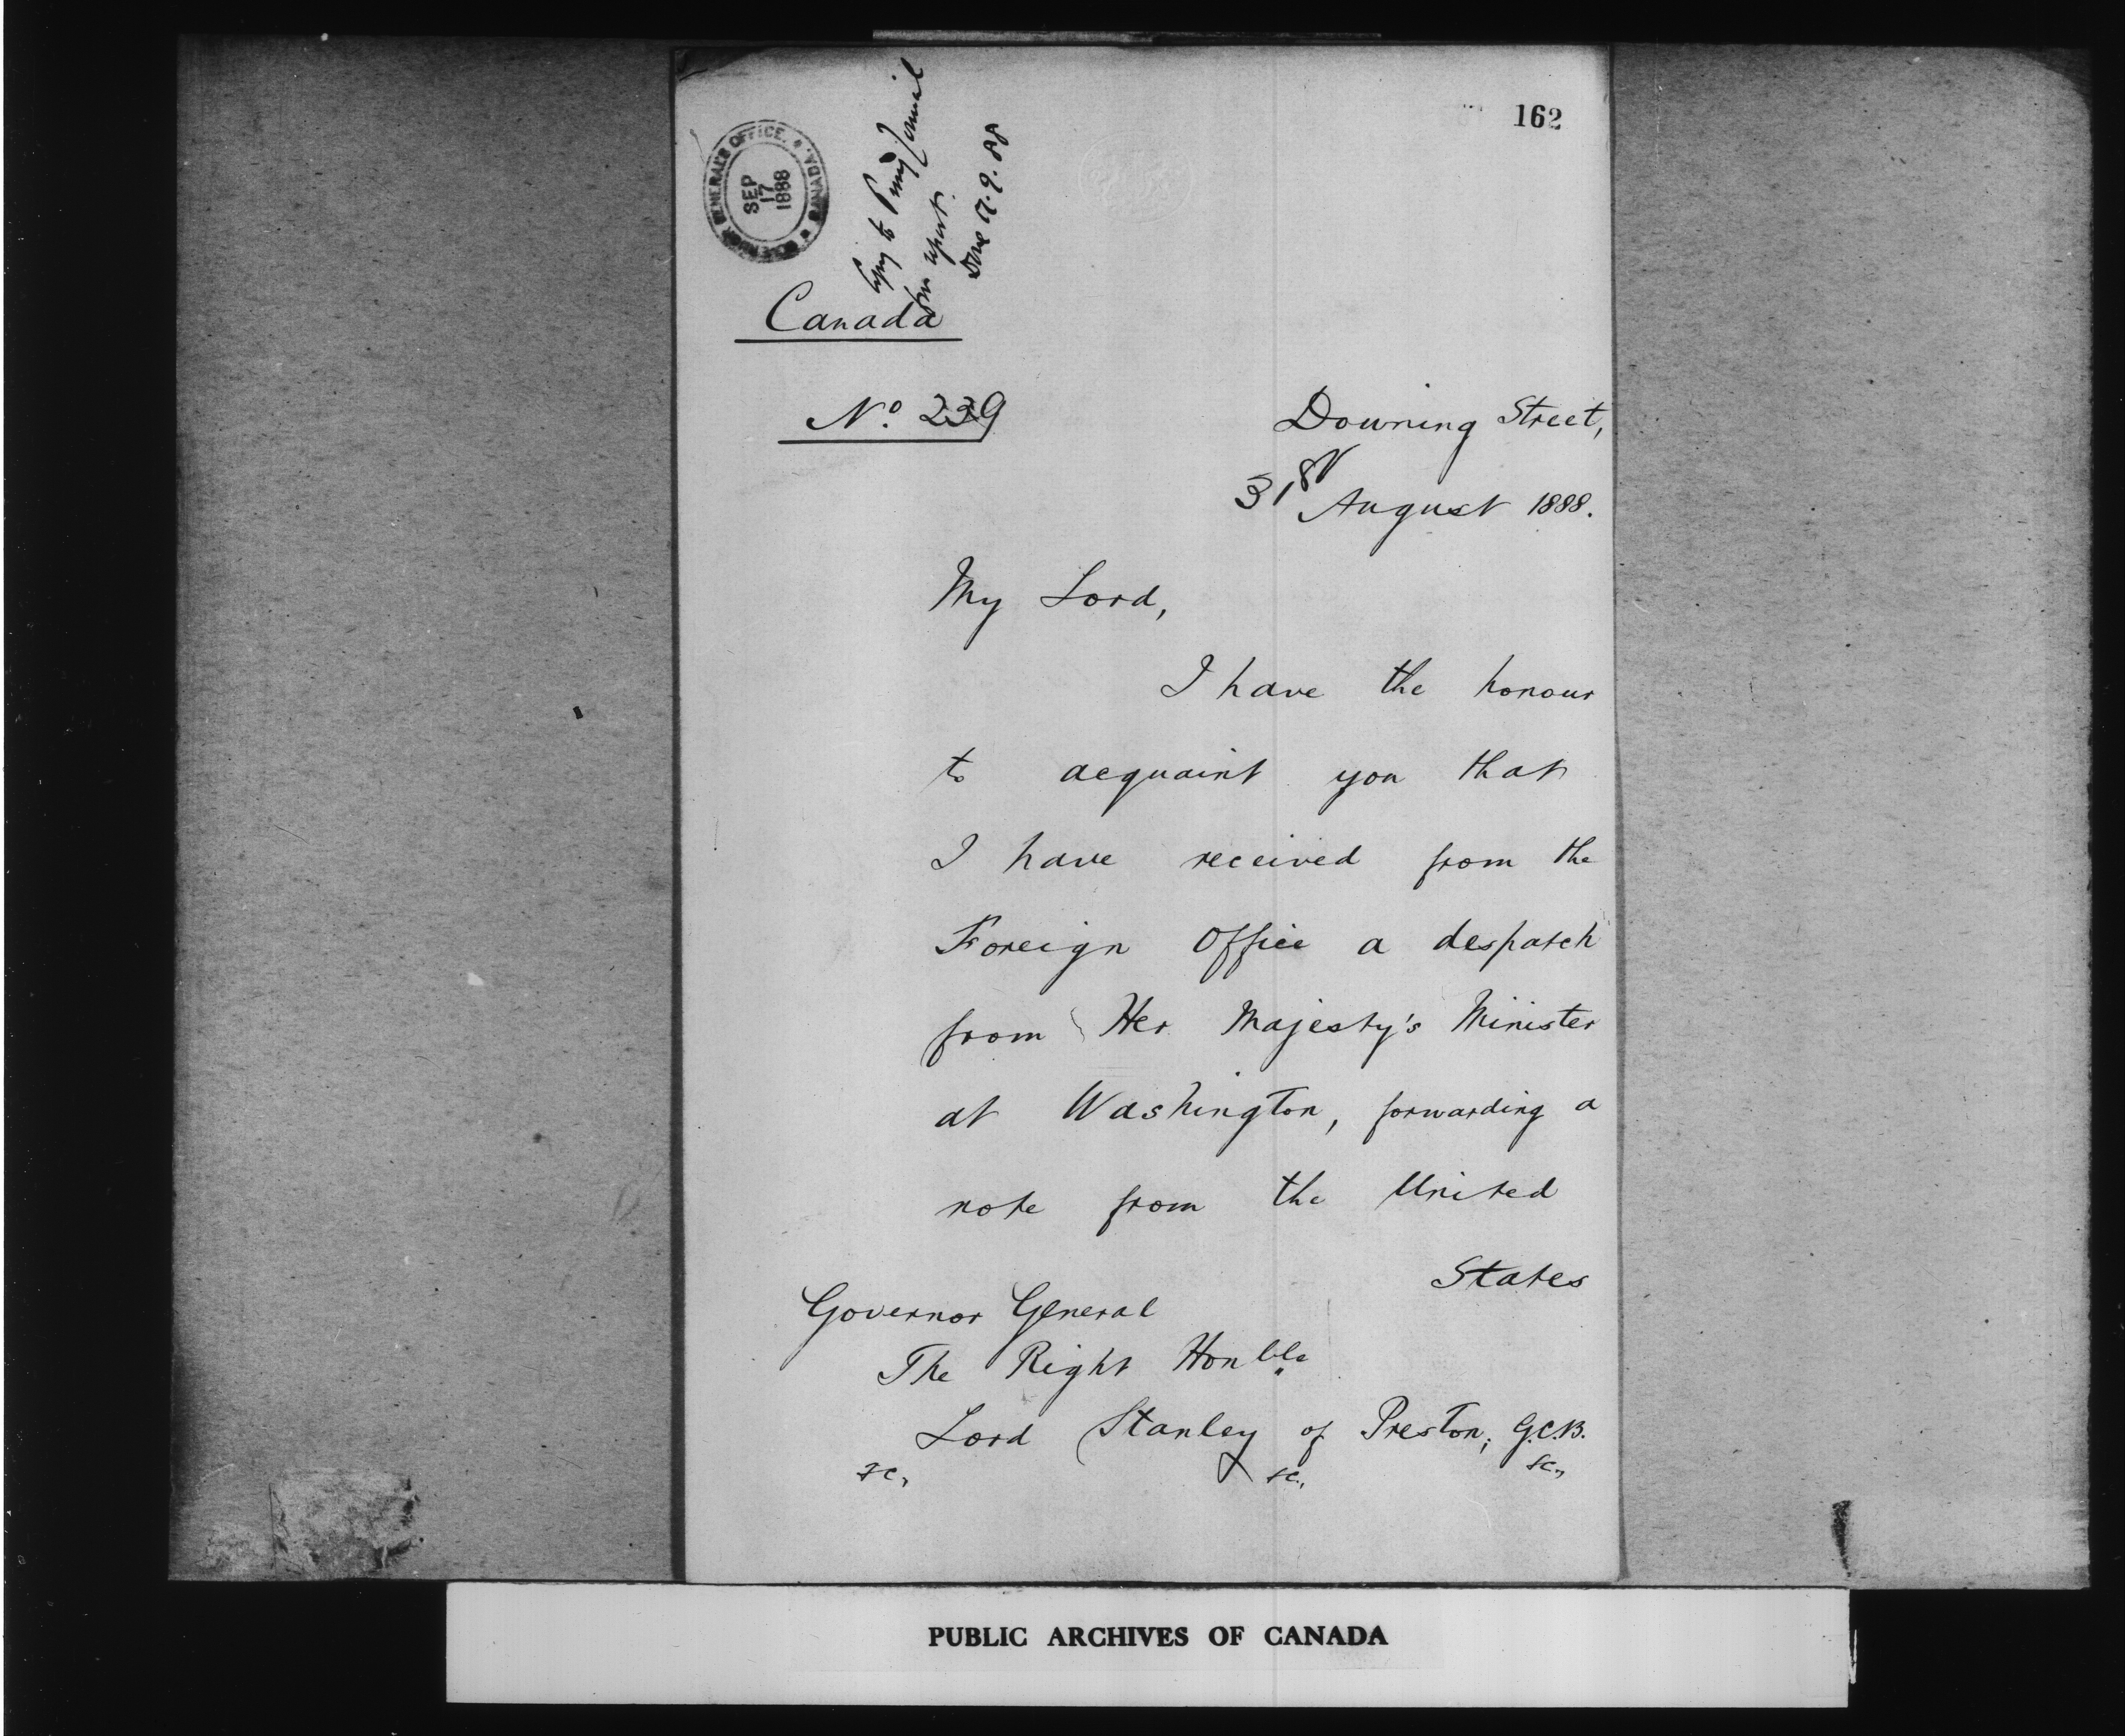 162
GOVERNOR GENERAL'S OFFICE. CANADA.
SEP
17
1888
Copy to Privy Council
for report.
Done 17.9.88
Canada
No. 239
Downing Street,
31st August 1888.
My Lord,
I have the honour
to acquaint you that
I have received from the
Foreign Office a despatch
from Her Majesty's Minister
at Washington, forwarding a
note from the United
States
Governor General
The Right Honble
Lord Stanley of Preston, G.C.B.
&c., &c., &c.,
PUBLIC ARCHIVES OF CANADA